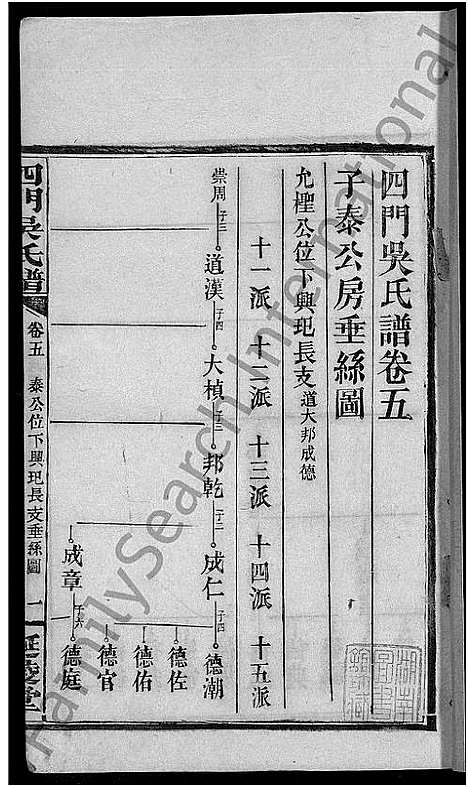 四門吳氏譜卷五
子泰公房垂絲圖
允檉公位下興玘長支道大邦成德
十一派 十二派 十三派 十四派 十五派
崇周子三道漢子四大楨子三邦乾子二成仁子四德潮
德佐
德佑
德官
成章子六德庭
四門吳氏譜 卷五 泰公位下興玘長支垂絲圖 一 延陵堂
FamilySearch International